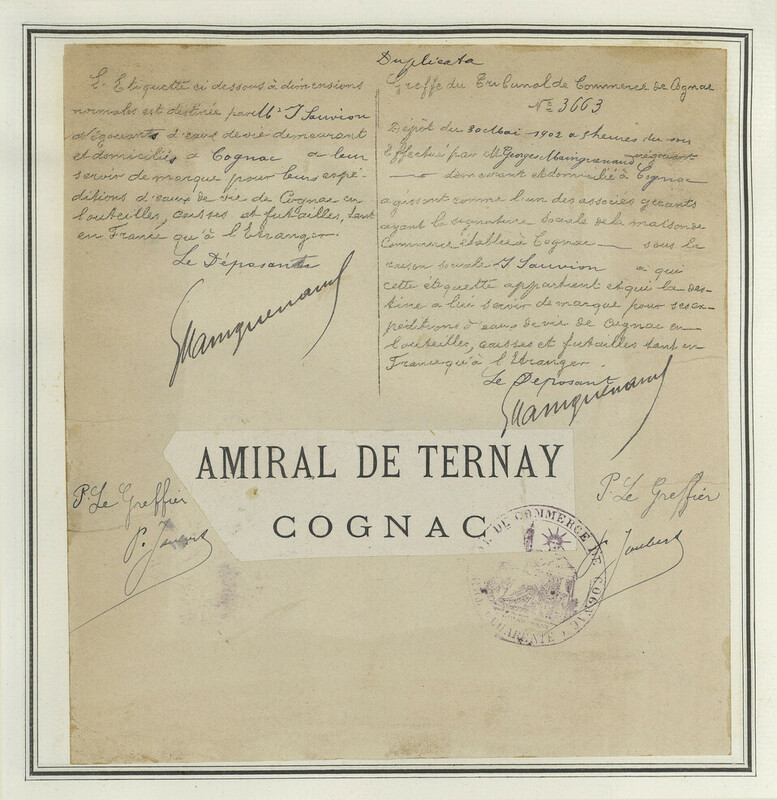 Duplicata
L'Etiquette ci dessous à dimensions
normales est destinée par Mr. J Sauvion
négociants d'eaux de vie demeurant
et domiciliés à Cognac à leur
servir de marque pour leurs expé-
ditions d'eaux de vie de Cognac en
bouteilles, caisses et futailles, tant
en France qu'à l'Etranger.
Le Déposant
GMainguenaud
Greffe du Tribunal de Commerce de Cognac
No 3663
Dépôt du 30 Mai 1902 à 5 heures du soir
Effectué par M. Georges Mainguenaud négociant
demeurant et domicilié à Cognac
agissant comme l'un des associés gérants
ayant la signature sociale de la maison de
Commerce établie à Cognac — sous la
raison sociale J Sauvion à qui
cette étiquette appartient et qui la des-
tine à lui servir de marque pour ses ex-
péditions d'eaux de vie de Cognac en
bouteilles, caisses et futailles tant en
France qu'à l'Etranger.
Le Déposant
GMainguenaud
AMIRAL DE TERNAY
COGNAC
P. Le Greffier
P. Joubert
P. Le Greffier
P. Joubert
DE COMMERCE DE COGNAC
CHARENTE